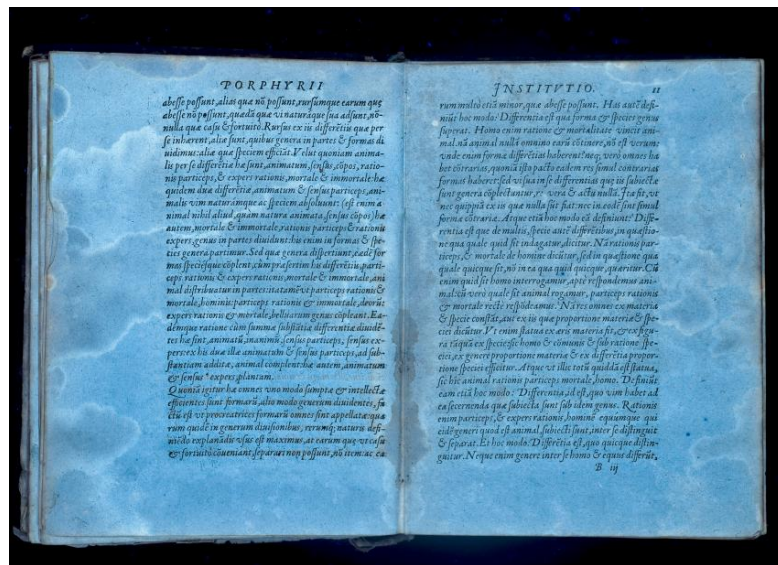 PORPHYRII
abesse possunt, alias quæ nō possunt, rursúmque earum quę
abesse nō possunt, quædā quæ vi naturæque sua adsunt, nō-
nulla quæ casu & fortuitò. Rursus ex iis differētiis quæ per
se inhærent, aliæ sunt, quibus genera in partes & formas di
uidimus: aliæ quæ speciem efficiāt. Velut quoniam anima-
lis per se differētiæ hæ sunt, animatum, sensus cōpos, ratio-
nis particeps, & expers rationis, mortale & immortale: hæ
quidem duæ differētiæ, animatum & sensus particeps, ani-
malis vim naturámque ac speciem absoluunt: (est enim a
nimal nihil aliud, quàm natura animata, sensus cōpos) hæ
autem, mortale & immortale, rationis particeps & rationis
expers, genus in partes diuidunt: his enim in formas & spe-
cies genera partimur. Sed quæ genera dispertiunt, eædē for
mas speciésque cōplent, cùm præsertim his differētiis, parti-
ceps rationis & expers rationis, mortale & immortale, ani
mal distribuatur in partes: ita tamē vt particeps rationis &
mortale, hominis: particeps rationis & immortale, deorū:
expers rationis & mortale, belluarum genus cōpleant. Ea-
démque ratione cùm summæ substātiæ differentiæ diuidē-
tes hæ sint, animatū, inanimū: sensus particeps, sensus ex
pers: ex his duæ illæ animatum & sensus particeps, ad sub-
stantiam additæ, animal complent: hæ autem, animatum
& sensus expers, plantam.
Quoniā igitur hæ omnes vno modo sumptæ & intellectæ
efficientes sunt formarū, alio modo generum diuidentes, fa
ctū est vt procreatrices formarū omnes sint appellatæ: qua
rum quidē in generum diuisionibus, rerumq; naturis defi-
niēdo explanādis vsus est maximus, at earum quę vt casu
& fortuitò cōueniant, separari non possunt, nō item: ac ea
INSTITVTIO. 11
rum multò etiā minor, quæ abesse possunt. Has autē defi-
niūt hoc modo: Differentia est qua forma & species genus
superat. Homo enim ratione & mortalitate vincit ani-
mal. nā animal nulla omnino earū cōtinere, nō est verum:
vnde enim formæ differētias haberent? neq; verò omnes ha
bet cōtrarias, quoniā ista pacto eadem res simul contrarias
formas haberet: sed vi suas in se differentias quę iis subiectæ
sunt genera cōplectantur, re verâ & actu nullâ. Ita fit, vt
nec quippiā ex iis quæ nulla sūt fiat: nec in eodē sint simul
formæ cōtrariæ. Atque etiā hoc modo eā definiunt: Diffe-
rentia est que de multis, specie autē differētibus, in quæstio-
ne qua quale quid sit indagatur, dicitur. Nā rationis par-
ticeps, & mortale de homine dicitur, sed in quæstione qua
quale quicque sit, nō in ea qua quid quicque, quæritur. Cū
enim quid sit homo interrogamur, aptè respondemus ani-
mal: vbi verò quale sit animal rogamur, particeps rationis
& mortale rectè respōdeamus. Nā res omnes ex materia
& specie constāt, aut ex iis quæ proportione materiæ & spe-
ciei dicūtur. Vt enim statua ex æris materia fit, & ex figu-
ra tāquā ex specie: sic homo & cōmunis & sub ratione spe-
ciei, ex genere proportione materiæ & ex differētia propor-
tione speciei efficitur. Atque vt illic totū quiddā est statua,
sic hic animal rationis particeps mortale, homo. Definiūt
eam etiā hoc modo: Differentia, id est, quo vim habet ad
ea secernenda quæ subiecta sunt sub idem genus. Rationis
enim particeps, & expers rationis, hominē equumque qui
eidē generi quod est animal, subiecti sunt, inter se distinguit
& separat. Et hoc modo: Differētia est, quo quicque distin-
guitur. Neque enim genere inter se homo & equus differūt,
B iij